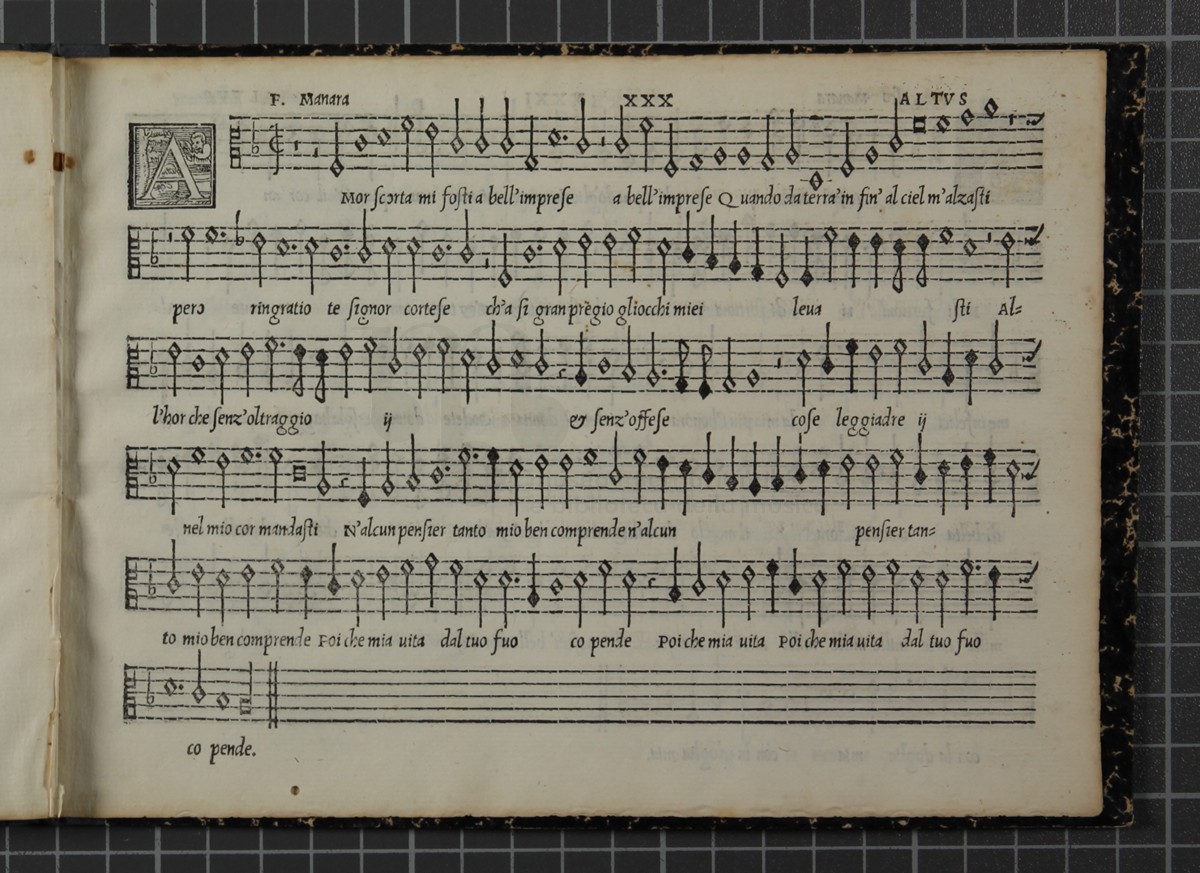 F. Manara XXX ALTVS
AMor scorta mi fosti a bell'imprese a bell'imprese Quando da terra'in fin' al ciel m'alzasti
pero ringratio te signor cortese ch'a si gran pregio gliocchi miei leua sti Al=
l'hor che senz'oltraggio ij & senz'offese cose leggiadre ij
nel mio cor mandasti N'alcun pensier tanto mio ben comprende n'alcun pensier tan=
to mio ben comprende Poi che mia uita dal tuo fuo co pende Poi che mia uita Poi che mia uita dal tuo fuo
co pende.